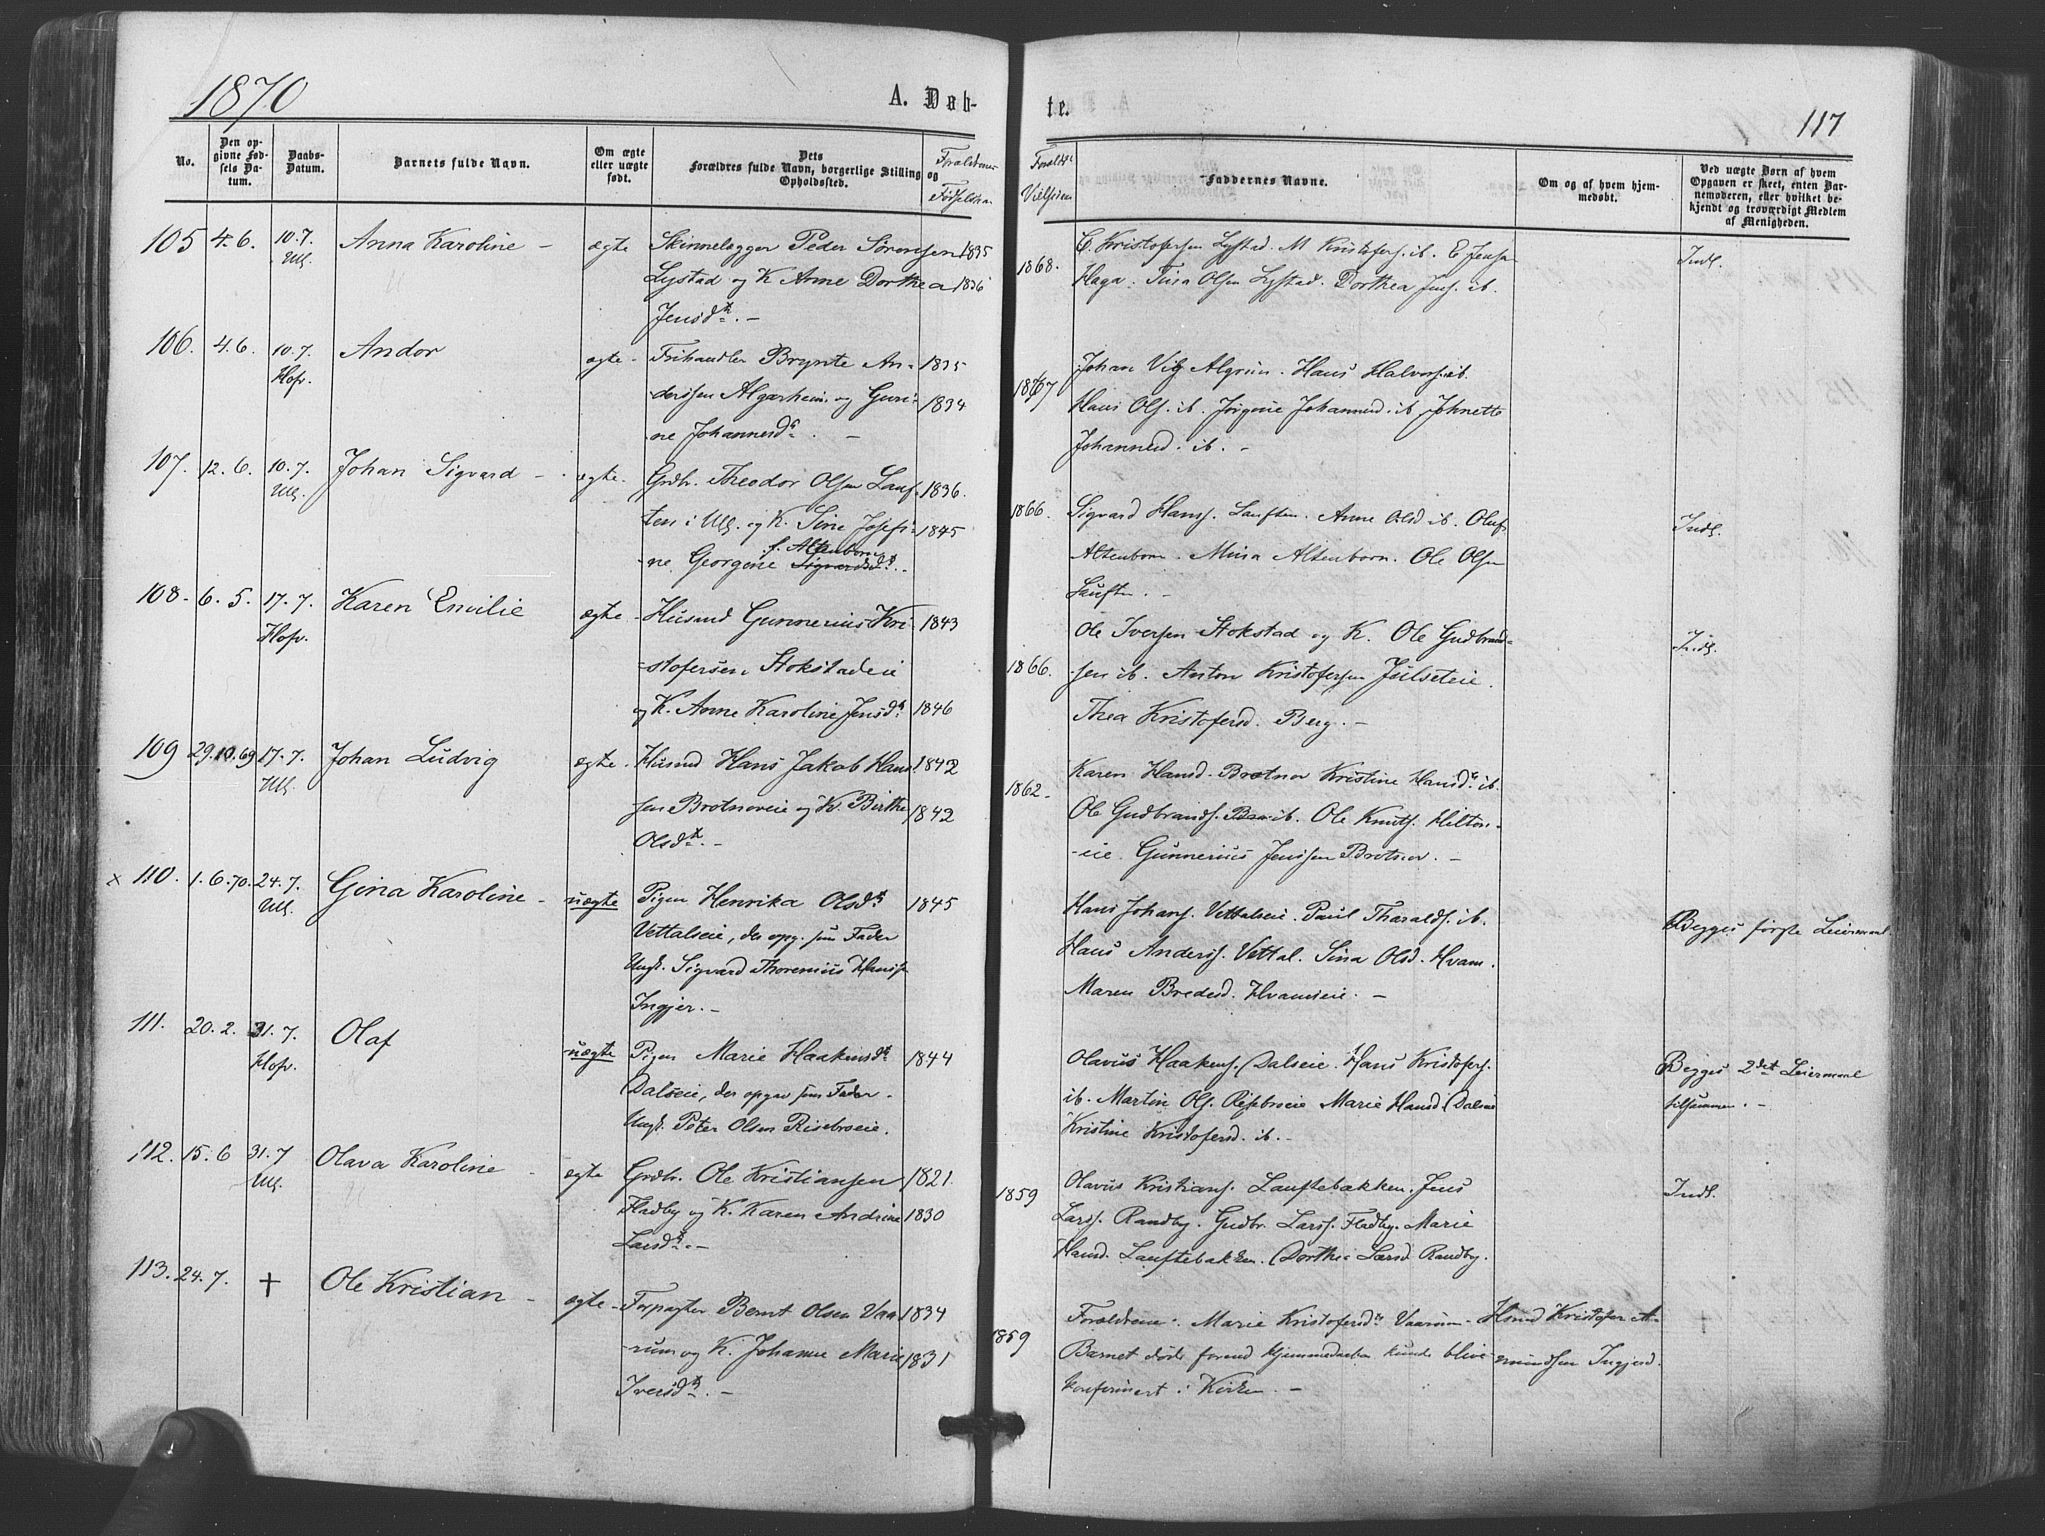 1870
A. Døb-
te.
117
No.
Den op-
givne Fød-
sels Da-
tum.
Daabs-
Datum.
Barnets fulde Navn.
Om ægte
eller uægte
født.
Dets
Forældres fulde Navn, borgerlige Stilling
Opholdssted.
Forældrenes
og
Fødselsaar
Vielsen
Faddernes Navne.
Om og af hvem hjem-
medøbt.
Ved uægte Børn af hvem
Opgaven er skeet, enten Bar-
nemoderen, eller hvilket be-
kjendt og troværdigt Medlem
af Menigheden.
105 4.6. 10.7. Anna Karoline - ægte Skinnelægger Peder Sørensen 1835
Ull. Lystad og K Anne Dorthea 1836
Jensdtr. -
1868. C. Kristofersen Lystad. M Kristofers. ib. E Jensn
Haga. Tina Olsen Lystad. Dorthea Jens. ib.
Indl.
106. 4.6. 10.7. Andor ægte - Frihandler Brynte An- 1835
Hov. derssen Algarheim og Guri- 1834
ne Johannesdr. -
1867 Johan Algrim. Hans Halvors. ib.
Hans Ols. ib. Jørgine Johannesd. ib. Johnette
Johannesd. ib. -
107. 12.6. 10.7. Johan Sigvard - ægte - Grdbr. Theodor Olsen Lauf- 1836.
Ull. ten i Ull. og K. Sine Josefi- 1845
f. Altenborn
ne Georgine Sigvardsdr. -
1866. Sigvard Hans. Lauften. Anne Olsd ib. Oluf
Altenborn. Mina Altenborn. Ole Olsen
Lauften. -
Indl.
108. 6.5. 17.7. Karen Emilie ægte - Husmd Gunnerius Kri- 1843
Hov. stofersen Stokstadeie
og K. Anne Karoline Jensdtr. 1846
1866. Ole Iversen Stokstad og K. Ole Gudbrand-
sen ib. Anton Kristofersen Julseteie.
Thea Kristofersd. Berg. -
Indl.
109 29.10.69 17.7. Johan Ludvig ægte - Husmd Hans Jakob Hans- 1842
Ull. sen Brotnoveie og K. Birthe 1842
Olsdtr. -
1862. Karen Hansd. Brotnov Kristine Hansdr ib.
Ole Gudbrands. ib. Ole Knuts. Hilton-
eie. Gunnerius Jenssen Brotnov. -
x 110. 1.6.70. 24.7. Gina Karoline - uægte Pigen Henrika Olsdtr 1845
Ull. Vettalseie, der opg. som Fader
Ungk. Sigvard Thorenius Hanssn
Ingjer. -
Hans Johans. Vettalseie. Paul Tharalds. ib.
Hans Anderss. Vettal. Sina Olsd. Hvam.
Maren Bredesd. Hvamseie. -
Begges første Leiermaal.
111. 20.2. 31.7. Olaf uægte Pigen Marie Haakensdtr 1844
Hov. Dalseie, der opgav som Fader
Ungk. Peter Olsen Risebroeie.
Olavus Haakens. Dalseie. Hans Kristofers.
ib. Martin Ols. Risebroeie Marie Hansd. Dalseie
Kristine Kristofersd. ib. -
Begges 2det Leiermaal
tilsammen. -
112. 15.6 31.7 Olava Karoline - ægte Grdbr. Ole Kristiansen 1821.
Ull. Fladby og K. Karen Andrine 1830
Larsdtr. -
1859 Olavus Kristians. Lauftebakken. Jens
Larss. Randby. Gudbr. Larss. Fladby. Marie
Hansd. Lauftebakken. Dorthea Larsd. Randby.
Indl.
113. 24.7. + Ole Kristian - ægte - Forpagter Bernt Olsen Vaa- 1834
rum og K. Johanne Marie 1831
Iversdtr. -
1859 Forældrene. Marie Kristofersdr Vaarum - Husmd Kristofer A-
Barnet døde forend Hjemmedaaben kunde blive mundsen Ingjerd.
konfirmert i Kirken. -